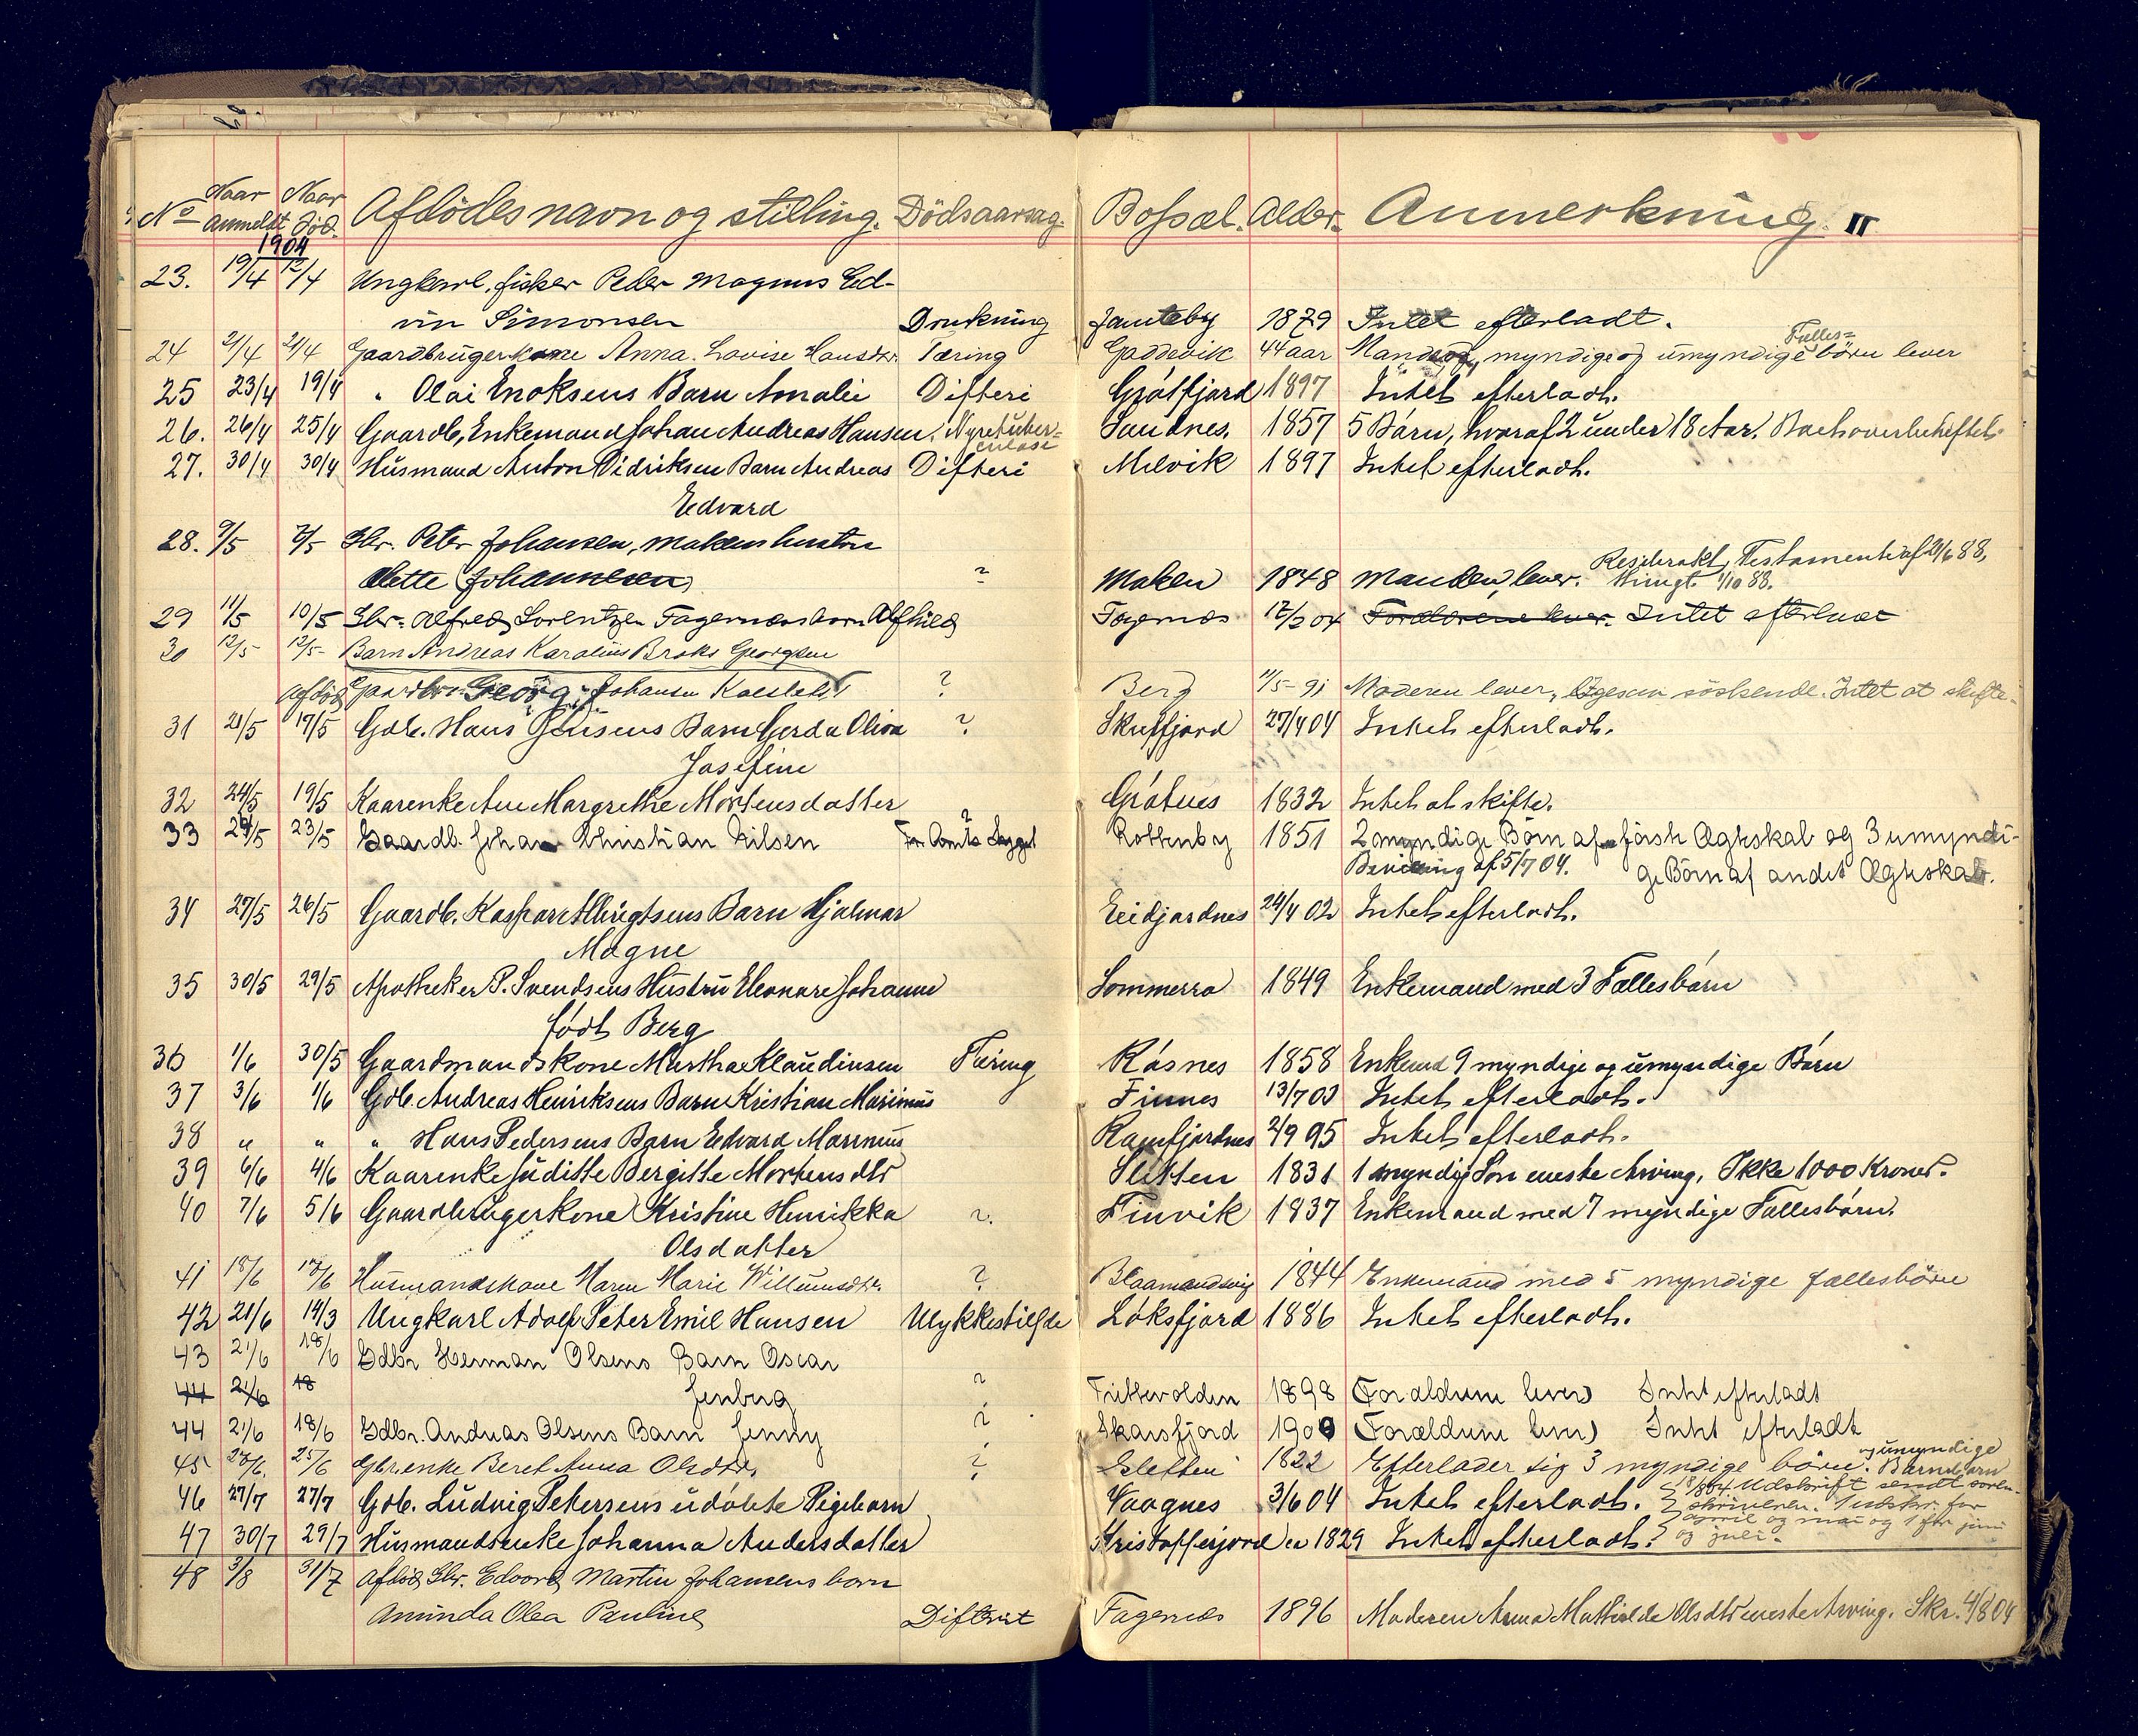 No Naar Anmeldt Naar Död. Afdödes navn og stilling. Dödsaarsag. Bopæl. Alder. Anmerkning. II
1904
23. 19/4 12/4 Ungkarl, fisker Peder Magnus Ed-
vin Simonsen Drukning 1879 Intet efterladt.
24 21/4 21/4 Gaardbrugerkone Anna Lovise Hansdtr. Tæring Gaddevik 44 aar Mand og myndige og umyndige Fælles- börn lever
25 23/4 19/4 " Olai Enoksens Barn Amalie Difteri Grötfjord 1897 Intet efterladt.
26. 26/4 25/4 Gaardb. Enkemand Johan Andreas Hansen. Nyretuber- Sandnes. 1857 5 Börn, hvoraf 2 under 18 Aar. Boet overbeheftet.
kulose
27. 30/4 30/4 Husmand Anton Didriksen Barn Andreas Difteri Mælvik 1897 Intet efterladt.
Edvard
28. 9/5 7/5 Gbr. Peter Johansen, Maken hustru
Alette Johannesen ? Maken 1848 Manden lever. Resiprokt Testamente af 21/6 88,
thingl. 1/10 88.
29 11/5 10/5 Gbr. Alfred Lorentzen Fagernes barn Alfhild Fagernes 17/2 04 Forældrene lever. Intet efterladt
30 12/5 12/5 Barn Andreas Karolius Broks Georgsen
afdöd Gaardbr. Georg Johansen Kaesletta ? Berg 11/5-91 Moderen lever, ligesaa söskende. Intet at skifte.
31 21/5 19/5 Gdb. Hans Jensens Barn Gerda Oliva ? Skulfjord 27/4 04 Intet efterladt.
Josefine
32 24/5 19/5 Kaarenke Ane Margrethe Mortensdatter ? Grötnes 1832 Intet at skifte.
33 24/5 23/5 Gaardb. Johan Christian Nilsen Rottenby 1851 2 myndige Börn af förste Ægteskab og 3 umyndi-
Bevilling af 5/7 04. ge Börn af andet Ægteskab.
34 27/5 26/5 Gaardb. Kaspar Ellingsens Barn Hjalmar Eidjordnes 24/4 02 Intet efterladt.
Magne
35 30/5 29/5 Apotheker P. Svendsens Hustru Eleonore Johanne Sommerro 1849 Enkemand med 3 Fællesbörn
födt Berg
36 1/6 30/5 Gaardmandskone Martha Klaudiusen Tæring Räsnes 1858 Enkemd 9 myndige og umyndige Börn
37 3/6 1/6 Gdb. Andreas Henriksens Barn Kristian Marinius Finnes 13/7 03 Intet efterladt.
38 " " " Hans Pedersens Barn Edvard Marinius Ramfjordnes 2/9 95 Intet efterladt.
39 6/6 4/6 Kaarenke Juditte Bergitte Mortensdtr Sletten 1831 1 myndig Sön eneste Arving. Ikke 1000 Kroner.
40 7/6 5/6 Gaardbrugerkone Kristine Henrikka ?. Finvik 1837 Enkemand med 7 myndige Fællesbörn.
Olsdatter
41 18/6 17/6 Husmandskone Maren Marie Willumsdtr. ? Blaamandsvig 1844 Enkemand med 5 myndige fællesbörn
42 21/6 14/3 Ungkarl Adolf Peter Emil Hansen Ulykkestilfde Laksfjord 1886 Intet efterladt.
43 21/6 18/6 Gdbr Herman Olsens Barn Oscar
44 21/6 18 Jenberg ? Trittevolden 1898 (Forældrene lever) Intet efterladt
44 21/6 18/6 Gdbr. Andreas Olsens Barn Jenny ? Skarsfjord 1900 (Forældrene lever) Intet efterladt
45 27/6. 25/6 Gbr.enke Beret Anna Olsdtr. ? Sletten 1822 Efterlader sig 3 myndige börn. og umyndige Barnebarn
46 27/7 27/7 Gdb. Ludvig Petersens udöbte Pigebarn Vaagnes 3/6 04 Intet efterladt. 8/8 04 Udskrift sendt soren-
skriveren. 1 udskr. for
april og mai og 1 for juni
og juli.
47 30/7 29/7 Husmandsenke Johanna Andersdatter Kristofferjord ca 1829 Intet efterladt.
48 3/8 31/7 Afdöd Gbr. Edvard Martin Johansens barn
Aminda Olea Pauline Difterit Fagernes 1896 Moderen Anna Mathilde Olsdtr eneste Arving. Skr. 4/8 04